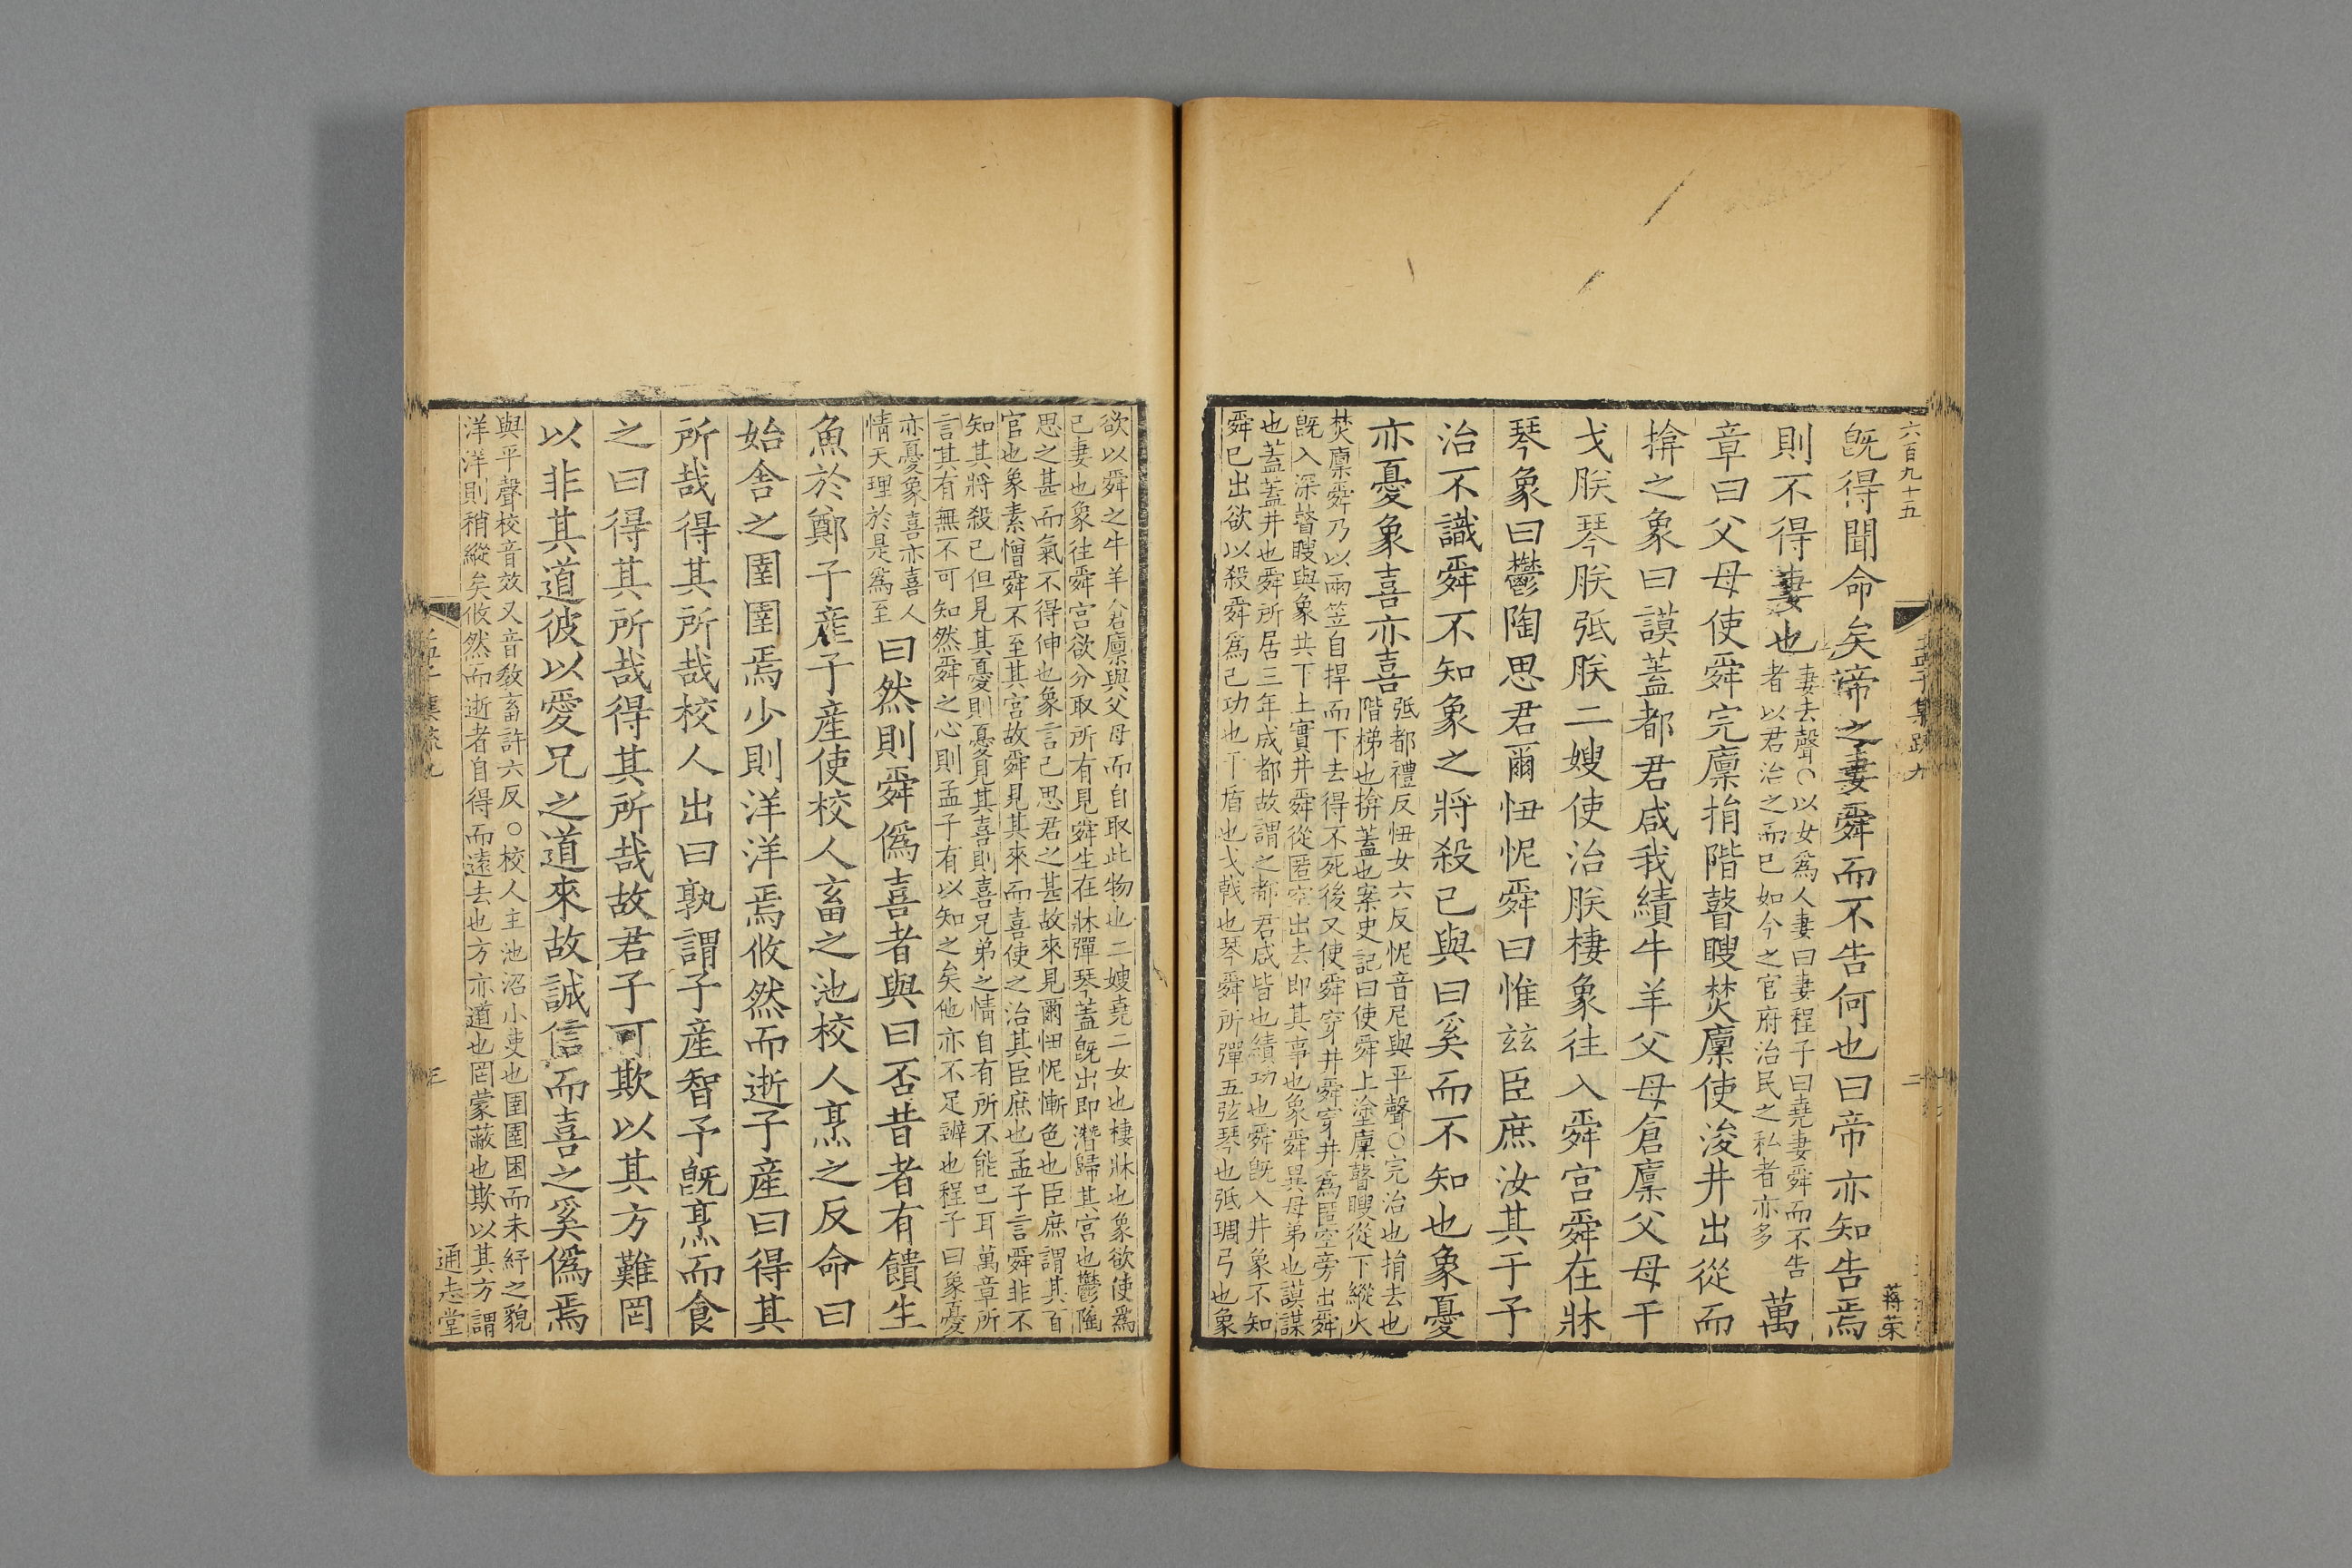 六百九十五
孟子集疏九
二
蔣荣
旣得聞命矣帝之妻舜而不告何也曰帝亦知告焉
則不得妻也
妻去聲○以女爲人妻曰妻程子曰堯妻舜而不告
者以君治之而已如今之官府治民之私者亦多
萬
章曰父母使舜完廩捐階瞽瞍焚廩使浚井出從而
揜之象曰謨蓋都君咸我績牛羊父母倉廩父母干
戈朕琴朕弤朕二嫂使治朕棲象往入舜宮舜在牀
琴象曰鬱陶思君爾忸怩舜曰惟茲臣庶汝其于予
治不識舜不知象之將殺己與曰奚而不知也象憂
亦憂象喜亦喜
弤都禮反忸女六反怩音尼與平聲○完治也捐去也
階梯也揜蓋也案史記曰使舜上塗廩瞽瞍從下縱火
焚廩舜乃以兩笠自捍而下去得不死後又使舜穿井舜穿井爲匿空旁出舜
旣入深瞽瞍與象共下土實井舜從匿空出去即其事也象舜異母弟也謨謀
也蓋蓋井也舜所居三年成都故謂之都君咸皆也績功也舜旣入井象不知
舜已出欲以殺舜爲己功也干盾也戈戟也琴舜所彈五弦琴也弤琱弓也象
欲以舜之牛羊倉廩與父母而自取此物也二嫂堯二女也棲牀也象欲使爲
己妻也象往舜宮欲分取所有見舜生在牀彈琴蓋旣出即潛歸其宮也鬱陶
思之甚而氣不得伸也象言己思君之甚故來見爾忸怩慚色也臣庶謂其百
官也象素憎舜不至其宮故舜見其來而喜使之治其臣庶也孟子言舜非不
知其將殺己但見其憂則憂見其喜則喜兄弟之情自有所不能已耳萬章所
言其有無不可知然舜之心則孟子有以知之矣他亦不足辨也程子曰象憂
亦憂象喜亦喜人
情天理於是爲至
曰然則舜僞喜者與曰否昔者有饋生
魚於鄭子產子產使校人畜之池校人烹之反命曰
始舍之圉圉焉少則洋洋焉攸然而逝子產曰得其
所哉得其所哉校人出曰孰謂子產智予旣烹而食
之曰得其所哉得其所哉故君子可欺以其方難罔
以非其道彼以愛兄之道來故誠信而喜之奚僞焉
與平聲校音效又音敎畜許六反○校人主池沼小吏也圉圉困而未紓之貌
洋洋則稍縱矣攸然而逝者自得而遠去也方亦道也罔蒙蔽也欺以其方謂
三
通志堂